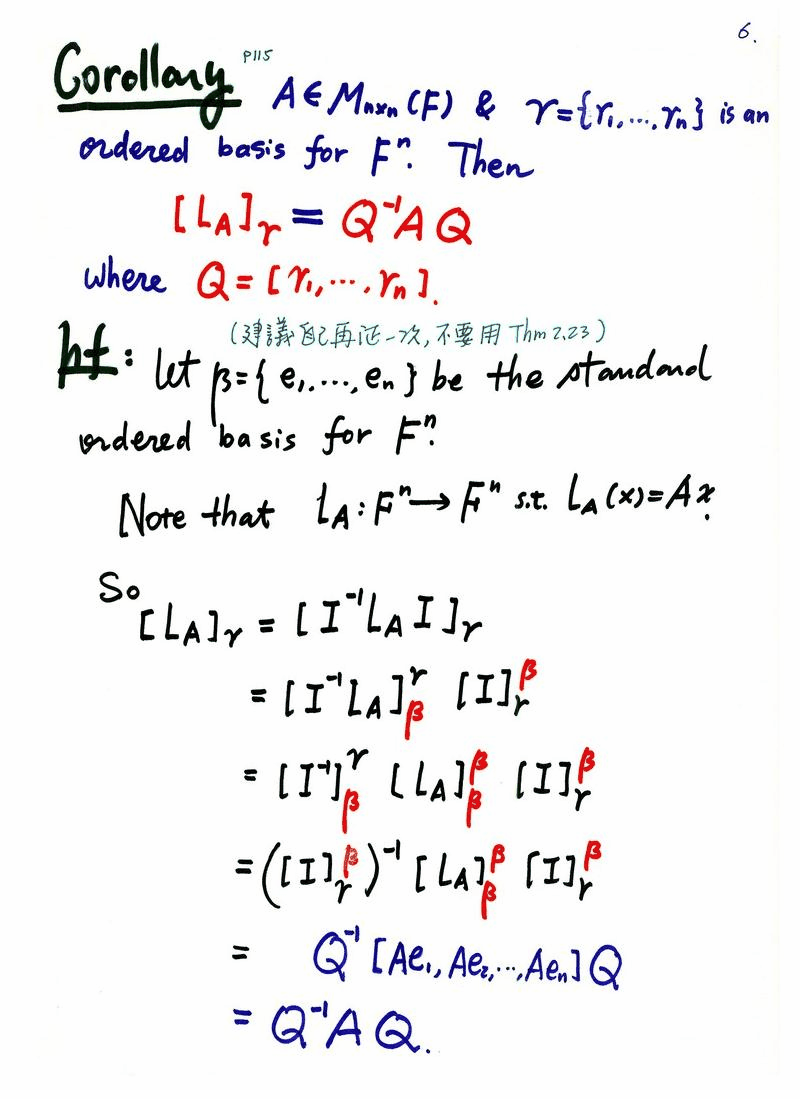 6.
Corollary P115 A ∈ Mₙₓₙ(F) & γ={γ₁,...,γₙ} is an
ordered basis for Fⁿ. Then
[L_A]_γ = Q⁻¹AQ
where Q = [γ₁,...,γₙ].
(建議自己再証一次,不要用 Thm 2.23)
pf: let β={e₁,...,eₙ} be the standard
ordered basis for Fⁿ.
Note that L_A : Fⁿ → Fⁿ s.t. L_A(x)=Ax.
So
[L_A]_γ = [I⁻¹L_A I]_γ
= [I⁻¹L_A]_β^γ [I]_γ^β
= [I⁻¹]_β^γ [L_A]_β^β [I]_γ^β
= ([I]_γ^β)⁻¹ [L_A]_β^β [I]_γ^β
= Q⁻¹ [Ae₁, Ae₂,...,Aeₙ] Q
= Q⁻¹AQ.